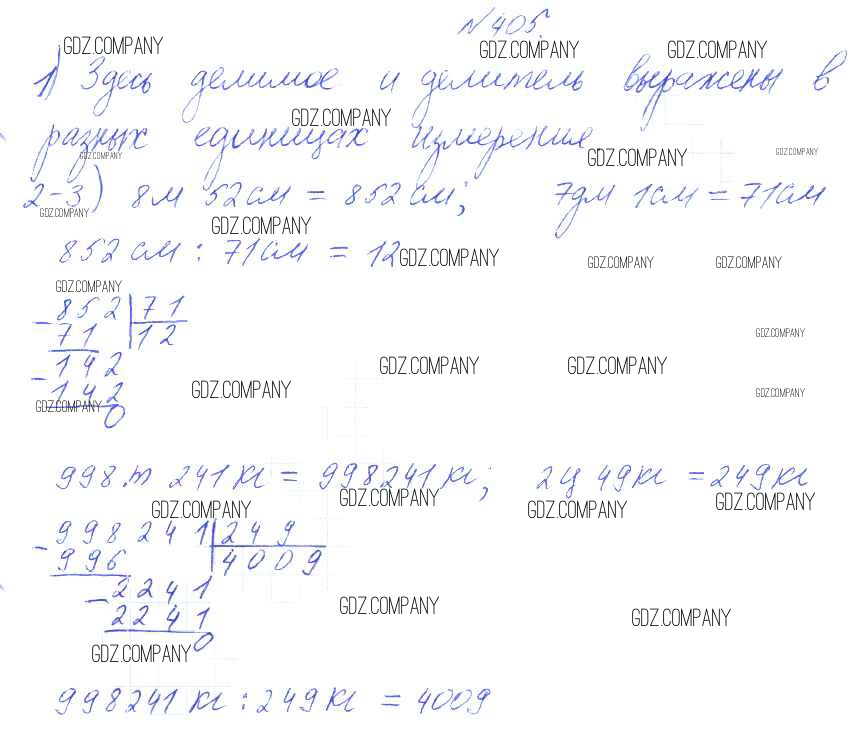 №405.
GDZ.COMPANY GDZ.COMPANY GDZ.COMPANY
1) Здесь делимое и делитель выражены в
GDZ.COMPANY
разных единицах измерения
GDZ.COMPANY GDZ.COMPANY GDZ.COMPANY
2-3) 8м 52см = 852см; 7дм 1см = 71см
GDZ.COMPANY GDZ.COMPANY
852см : 71см = 12
GDZ.COMPANY GDZ.COMPANY GDZ.COMPANY
GDZ.COMPANY
- 852 | 71
71 | 12
GDZ.COMPANY
- 142
GDZ.COMPANY GDZ.COMPANY
142
GDZ.COMPANY GDZ.COMPANY
GDZ.COMPANY
0
998т 241кг = 998241кг; 2ц 49кг = 249кг
GDZ.COMPANY GDZ.COMPANY GDZ.COMPANY GDZ.COMPANY
- 998241 | 249
996 | 4009
- 2241
GDZ.COMPANY
2241
GDZ.COMPANY
0
GDZ.COMPANY
998241кг : 249кг = 4009